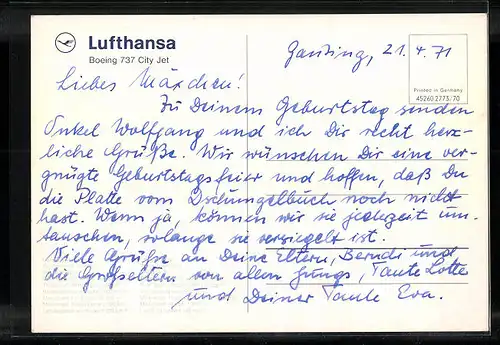 Lufthansa
Boeing 737 City Jet
Gauting, 21.4.71
Printed in Germany
45260 2773/70
Liebes Mäxchen!
Zu Deinem Geburtstag senden
Onkel Wolfgang und ich Dir recht herz-
liche Grüße. Wir wünschen Dir eine ver-
gnügte Geburtstagsfeier und hoffen, daß Du
die Platte vom Dschungelbuch noch nicht
hast. Wenn ja, können wir sie jederzeit um-
tauschen, solange sie versiegelt ist.
Viele Grüße an Deine Eltern, Berndi und
die Großeltern von allen Jungs, Tante Lotte
und Deiner Tante Eva.